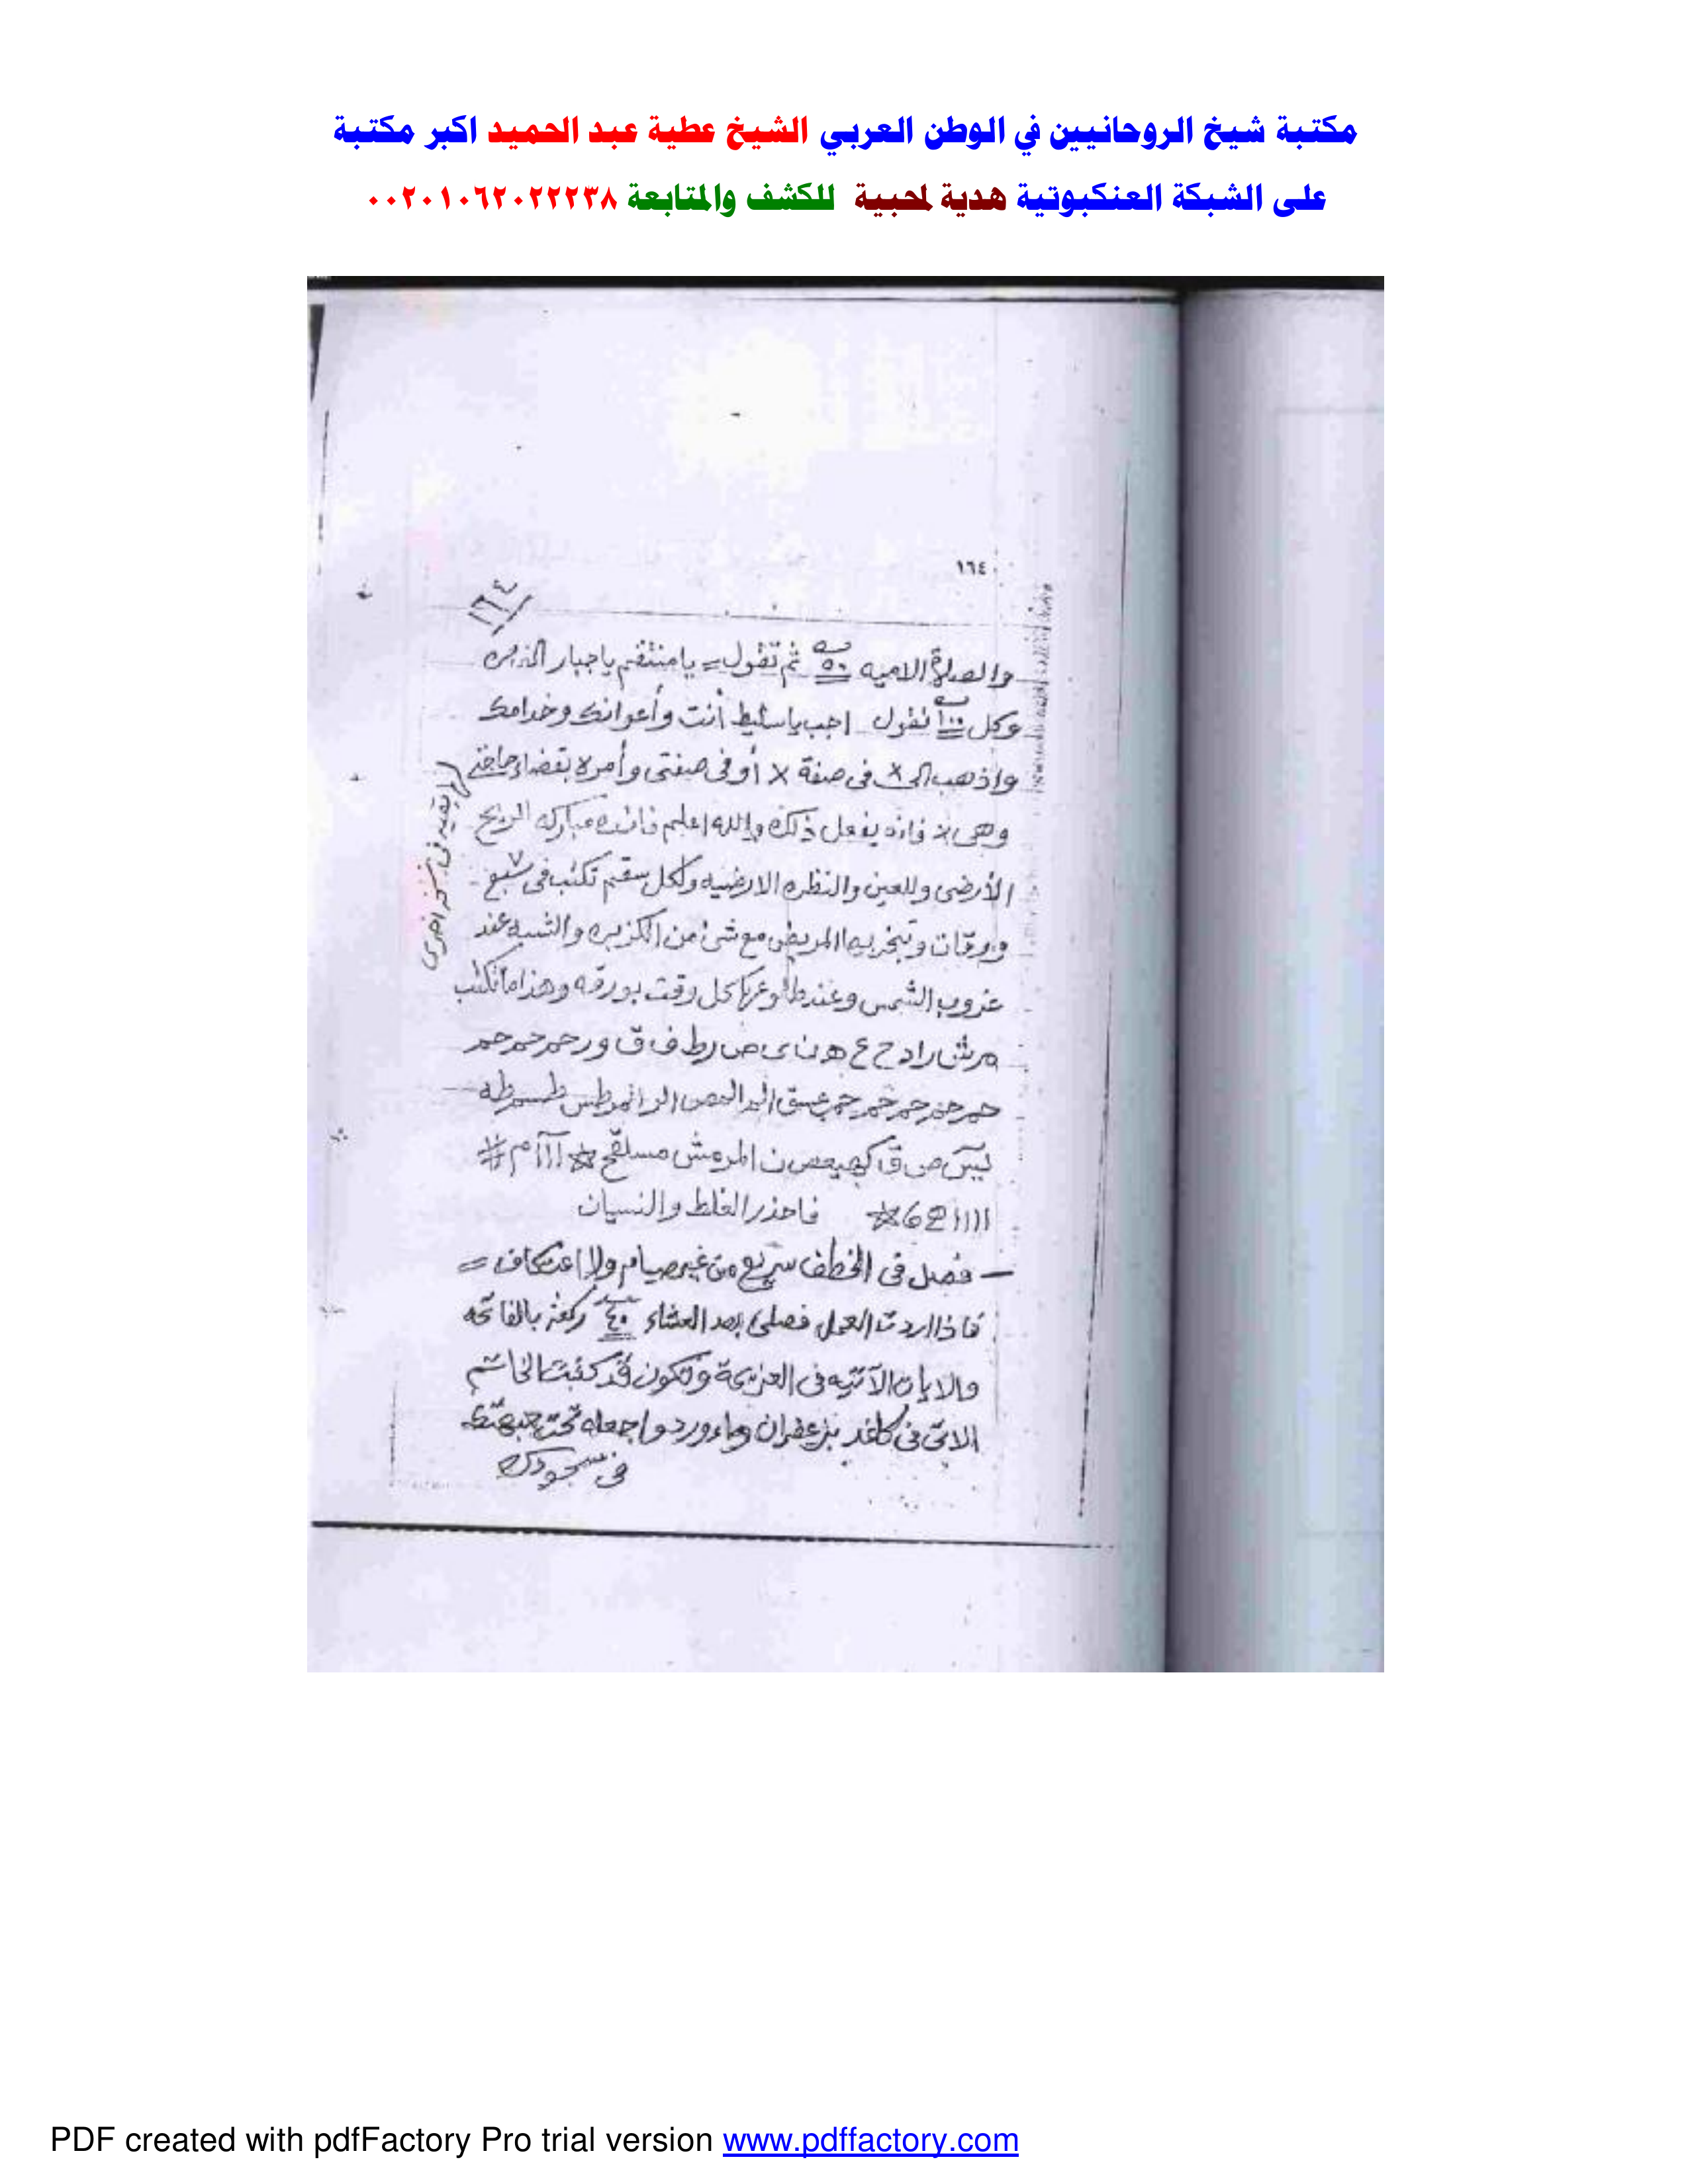 مكتبة شيخ الروحانيين في الوطن العربي الشيخ عطية عبد الحميد اكبر مكتبة
على الشبكة العنكبوتية هدية لمحبية للكشف والمتابعة ٠٠٢٠١٠٦٢٠٢٢٢٣٨
١٦٤
١٦٤
والصلاة الاميه ٥٠ ثم تقول = يا منتقم يا جبار
وكل ١٠٠ تقول اجب يا سليط أنت وأعوانك وخدامك
واذهب الى × فى صفة × أو فى صفتى وأمره بقضاء حاجتى
وهى × فانه يفعل ذلك والله اعلم فائده مباركه الريح
الأرضى وللعين والنظره الارضيه ولكل سقم تكتب فى سبع
ورقات وتبخر بها المريض مع شئ من الكزبره والشبه عند
غروب الشمس وعند طلوعها كل وقت بورقه وهذا ما تكتب
حم حم حم حم حم عسق
يس ص ق كهيعص ن
فاحذر الغلط والنسيان
— فصل فى الخطف سريع من غير صيام ولا اعتكاف =
فاذا اردت العمل فصلى بعد العشاء ٤٠ ركعة بالفاتحه
والايات الآتيه فى العزيمة وتكون قد كتبت الخاتم
الاتى فى كاغد بزعفران وماء ورد واجعله تحت جبهتك
فى سجودك
اخرى
PDF created with pdfFactory Pro trial version www.pdffactory.com